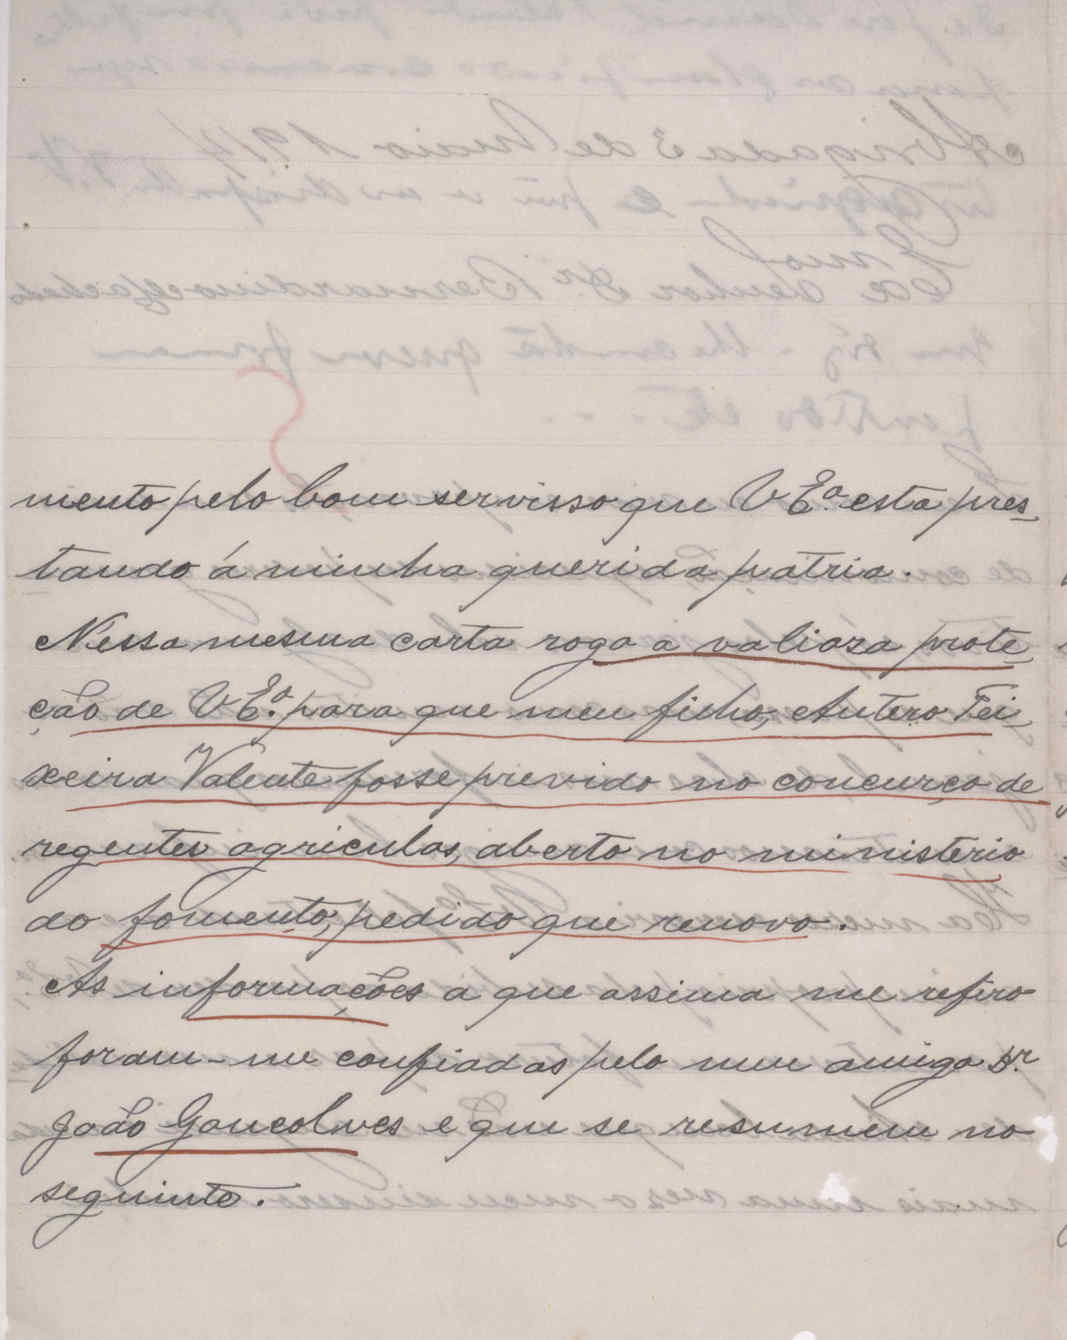 mento pelo bom servisso que V Eª. esta pres-
tando á minha querida patria.
Nessa mesma carta rogo a valioza prote-
ção de V Eª. para que meu filho, Antero Tei-
xeira Valente fosse prevido no concurço de
regentes agriculas, aberto no ministerio
do fomento, pedido que renovo.
As informações a que assima me refiro
foram-me confiadas pelo meu amigo Dr.
João Goncolves e que se resumem no
seguinte.